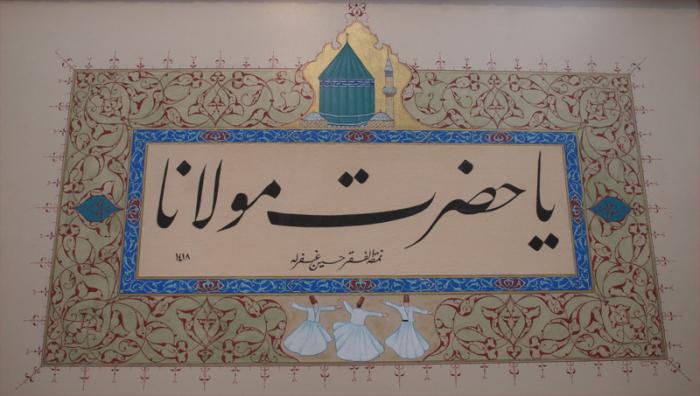 يا حضرت مولانا
نمقه الفقير حسين غفر له
١٤١٨